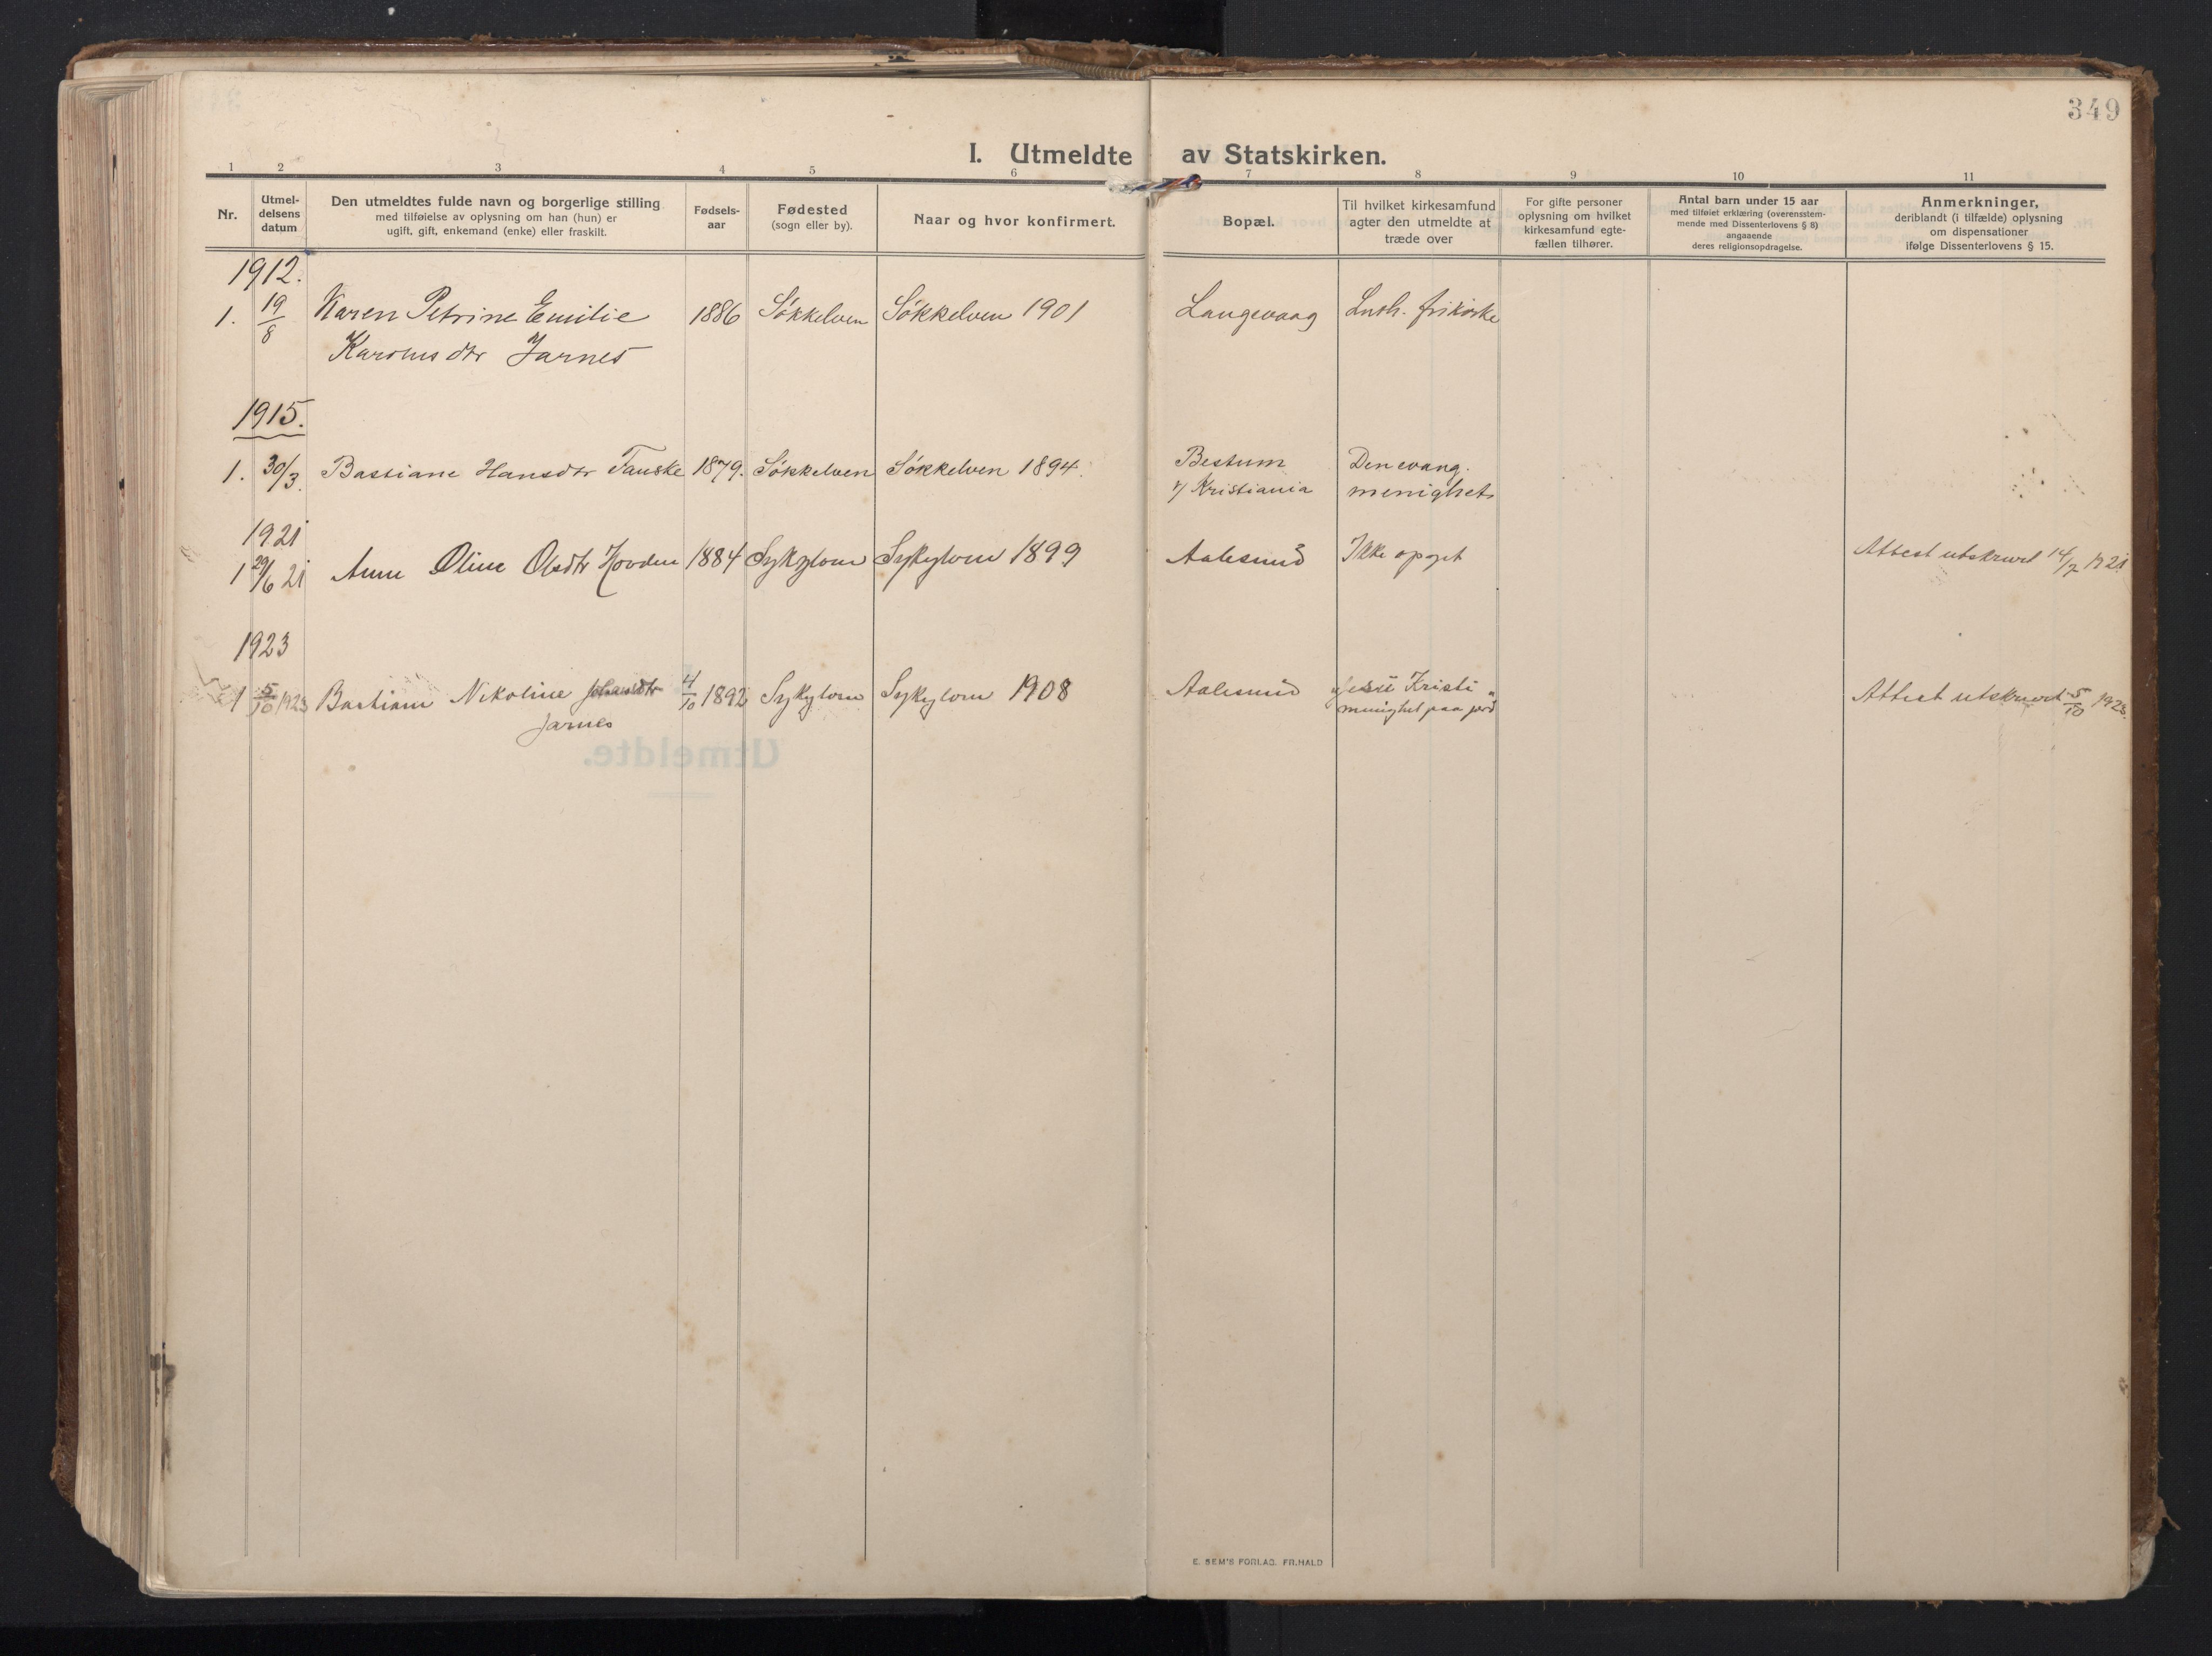 349
I. Utmeldte av Statskirken.
1 2 3 4 5 6 7 8 9 10 11
Nr.
Utmel-
delsens
datum
Den utmeldtes fulde navn og borgerlige stilling
med tilføielse av oplysning om han (hun) er
ugift, gift, enkemand (enke) eller fraskilt.
Fødsels-
aar
Fødested
(sogn eller by).
Naar og hvor konfirmert.
Bopæl.
Til hvilket kirkesamfund
agter den utmeldte at
træde over
For gifte personer
oplysning om hvilket
kirkesamfund egte-
fællen tilhører.
Antal barn under 15 aar
med tilføiet erklæring (overensstem-
mende med Dissenterlovens § 8)
angaaende
deres religionsopdragelse.
Anmerkninger,
deriblandt (i tilfælde) oplysning
om dispensationer
ifølge Dissenterlovens § 15.
1912.
1. 19/8 Karen Petrine Emilie 1886 Søkkelven Søkkelven 1901 Langevaag Luth. frikirke
Karolusdtr Jarnes
1915.
1. 30/3. Bastiane Hansdtr Tauske 1879. Søkkelven Søkkelven 1894. Bestum Den evang.
v/ Kristiania menighet
1921
1 29/6 21 Anne Oline Olsdtr Hovden 1884 Sykylven Sykylven 1899 Aalesund Ikke opgit Attest utskrevet 14/7 1921
1923
1 5/10 1923 Bastiane Nikoline Johansdtr 4/10 1892 Sykylven Sykylven 1908 Aalesund "Jesu Kristi Attest utskrevet 5/10 1923.
Jarnes menighet paa jord"
Utmeldte.
E. SEM'S FORLAG, FR.HALD